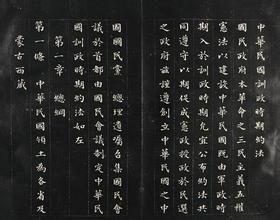 中華民國訓政時期約法
國民政府本革命之三民主義五權
憲法以建設中華民國既由軍政時
期入於訓政時期允宜公布約法共
同遵守以期促成憲政授政於民選
之政府茲謹遵創立中華民國之中
國國民黨　總理遺囑召集國民會
議於首都由國民會議制定中華民
國訓政時期約法如左
第一章　總綱
第一條　中華民國領土為各省及
蒙古西藏